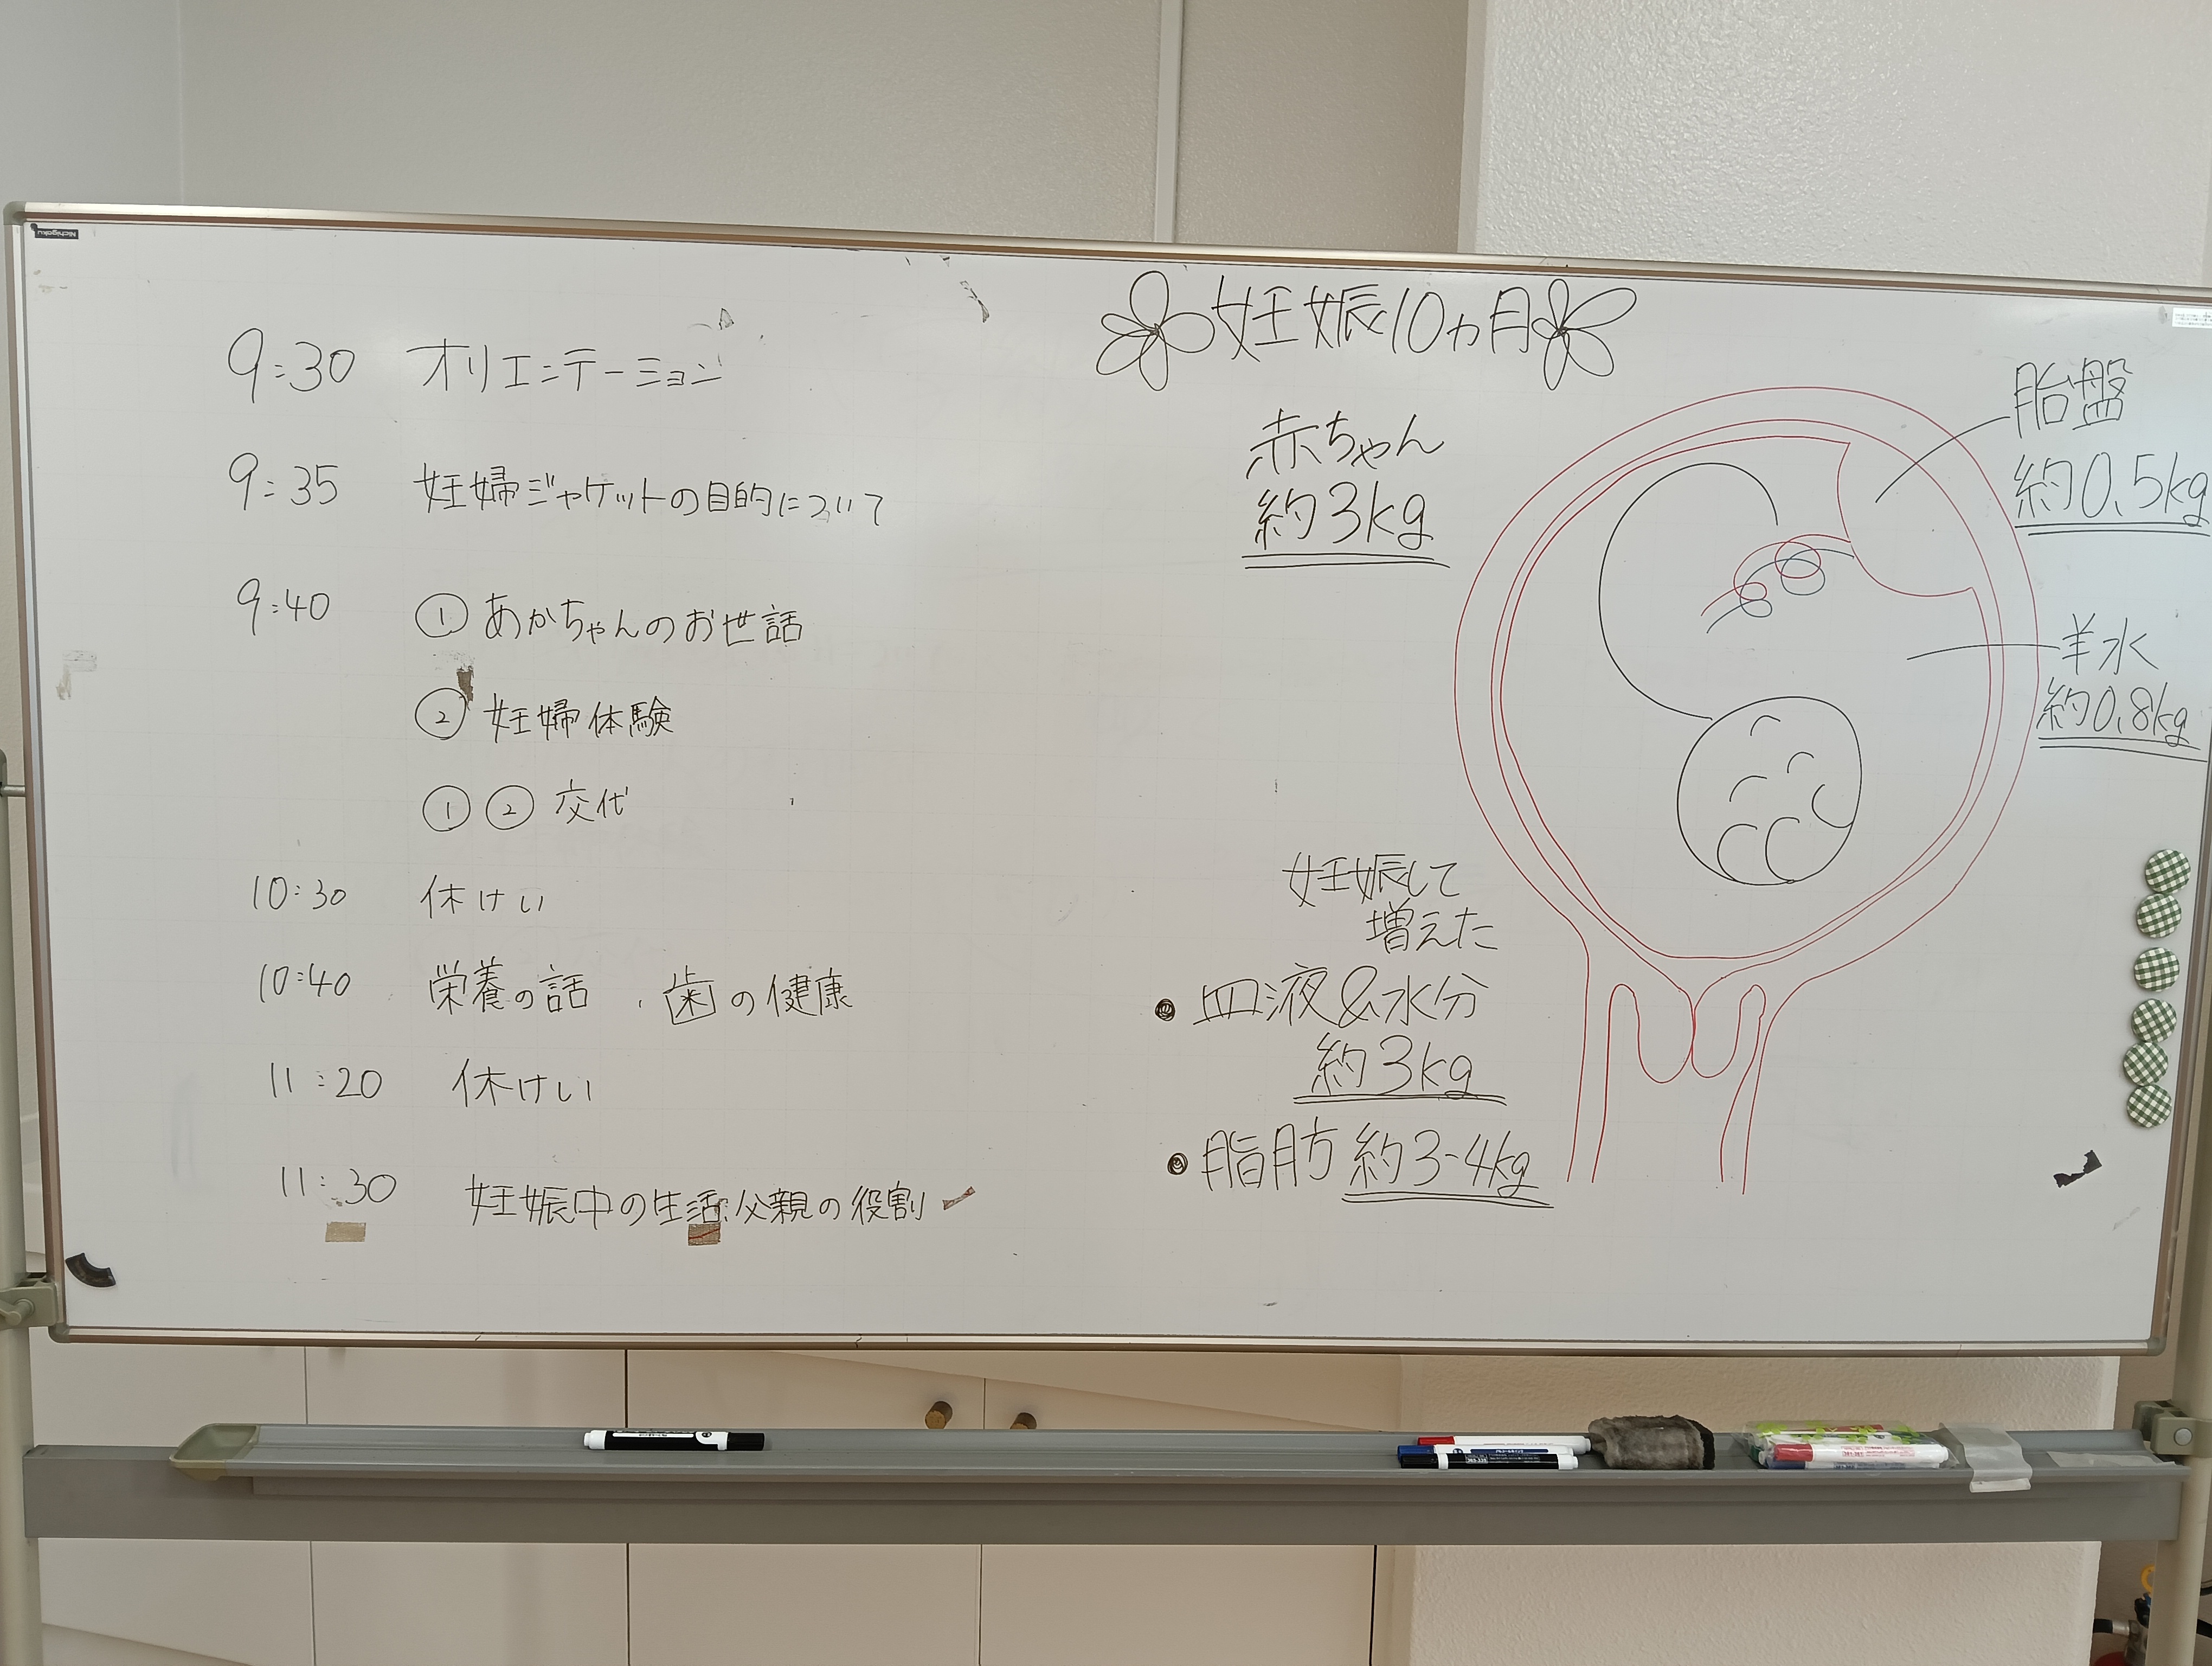 Nichigaku
9:30 オリエンテーション
9:35 妊婦ジャケットの目的について
9:40 ① あかちゃんのお世話
② 妊婦体験
① ② 交代
10:30 休けい
10:40 栄養の話 ・歯の健康
11:20 休けい
11:30 妊娠中の生活 父親の役割
妊娠10ヵ月
赤ちゃん
約3kg
胎盤
約0.5kg
羊水
約0.8kg
妊娠して
増えた
• 血液&水分
約3kg
• 脂肪 約3-4kg